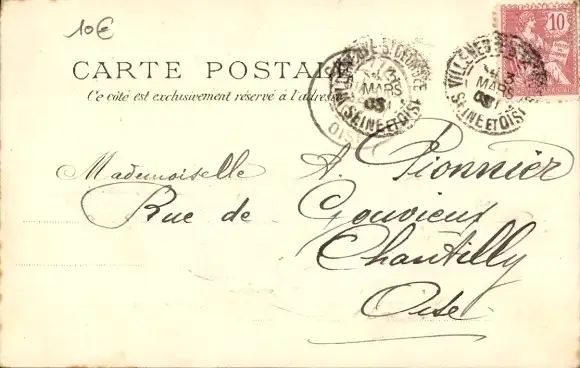 10€
CARTE POSTALE
Ce côté est exclusivement réservé à l'adresse
VILLENEUVE-ST-GEORGES
3
MARS
03
SEINE ET OISE
3
MARS
03
SEINE ET OISE
10
Mademoiselle A. Pionnier
Rue de Gouvieux
Chantilly
Oise